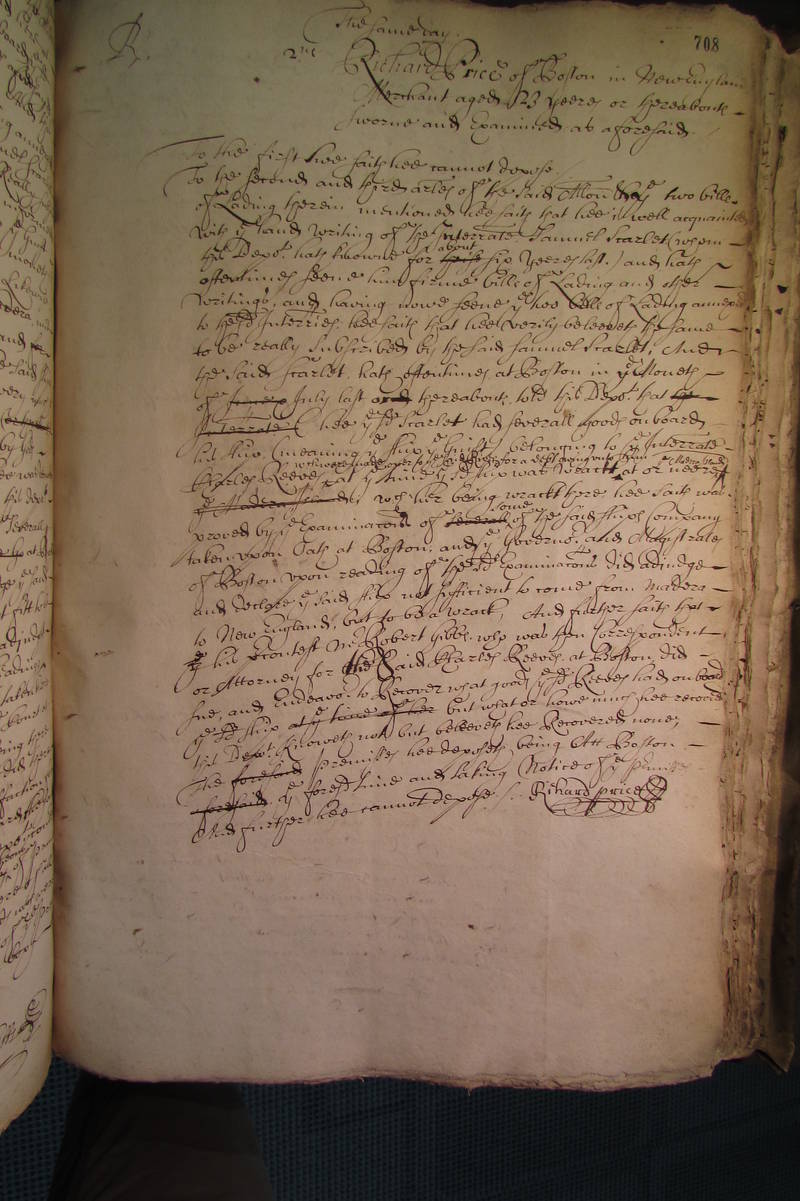 The same day.
708
R.
2us Richard Price of Boston in New England
Merchant aged 23 yeeres or thereabouts
sworne and Examined as aforesaid.
To the first hee saith hee cannot depose.
To the second and third arles of the said Allon &amp; ye two bills
of Lading therein mentioned hee saith that hee is well acquainted
with ye hand writing of the Interrate Samuel Scarlet (whom
this Depot hath knowne for about six yeeres last) and hath
oftentimes seene him firme bills of Lading and other
writings, and having nowe seene ye bill of Lading annexed
to the sd Interries, hee saith that hee verily beleeveth the same
to be really subscribed by the said Samuel Scarlet, And
the said Scarlet hath oftentimes at Boston in ye Moneth
of July last and thereabouts told this Depot that the
Interrate hee ye sd Scarlet had severall goods on board
his ship (meaning ye ship ye belonging to ye Interrate
which were made over to for a debt oweing unto him
Charles Reeves at ye time ye sd ship was wrackt at or neere ye Maderas
wch her being wrackt there hee saith was
proved by ye Examinacons of severall some of the said ships Company
taken upon Oath at Boston, and ye Governor and Magistrates
of Boston upon reading of the sd Examinacons did adjudge
and declare ye said ship not sufficient to come from Madera
to New England, but to be a wrack, And further saith that
ye his Contest Mr Robert Gibbs, who was then Correspondent
or Attorney for the said Charles Reeves at Boston did
sue, and Endeavor to Recover what goods ye sd Reeves had on board
ye sd ship at ye time of her but what or howe much hee recovered
this Depot knoweth not but beleeveth hee Recovered none,
The foresaid premisses hee deposeth being Att Boston
aforesaid ye foresd time and taking Notice of ye premisses
And further hee cannot depose.
Richard price